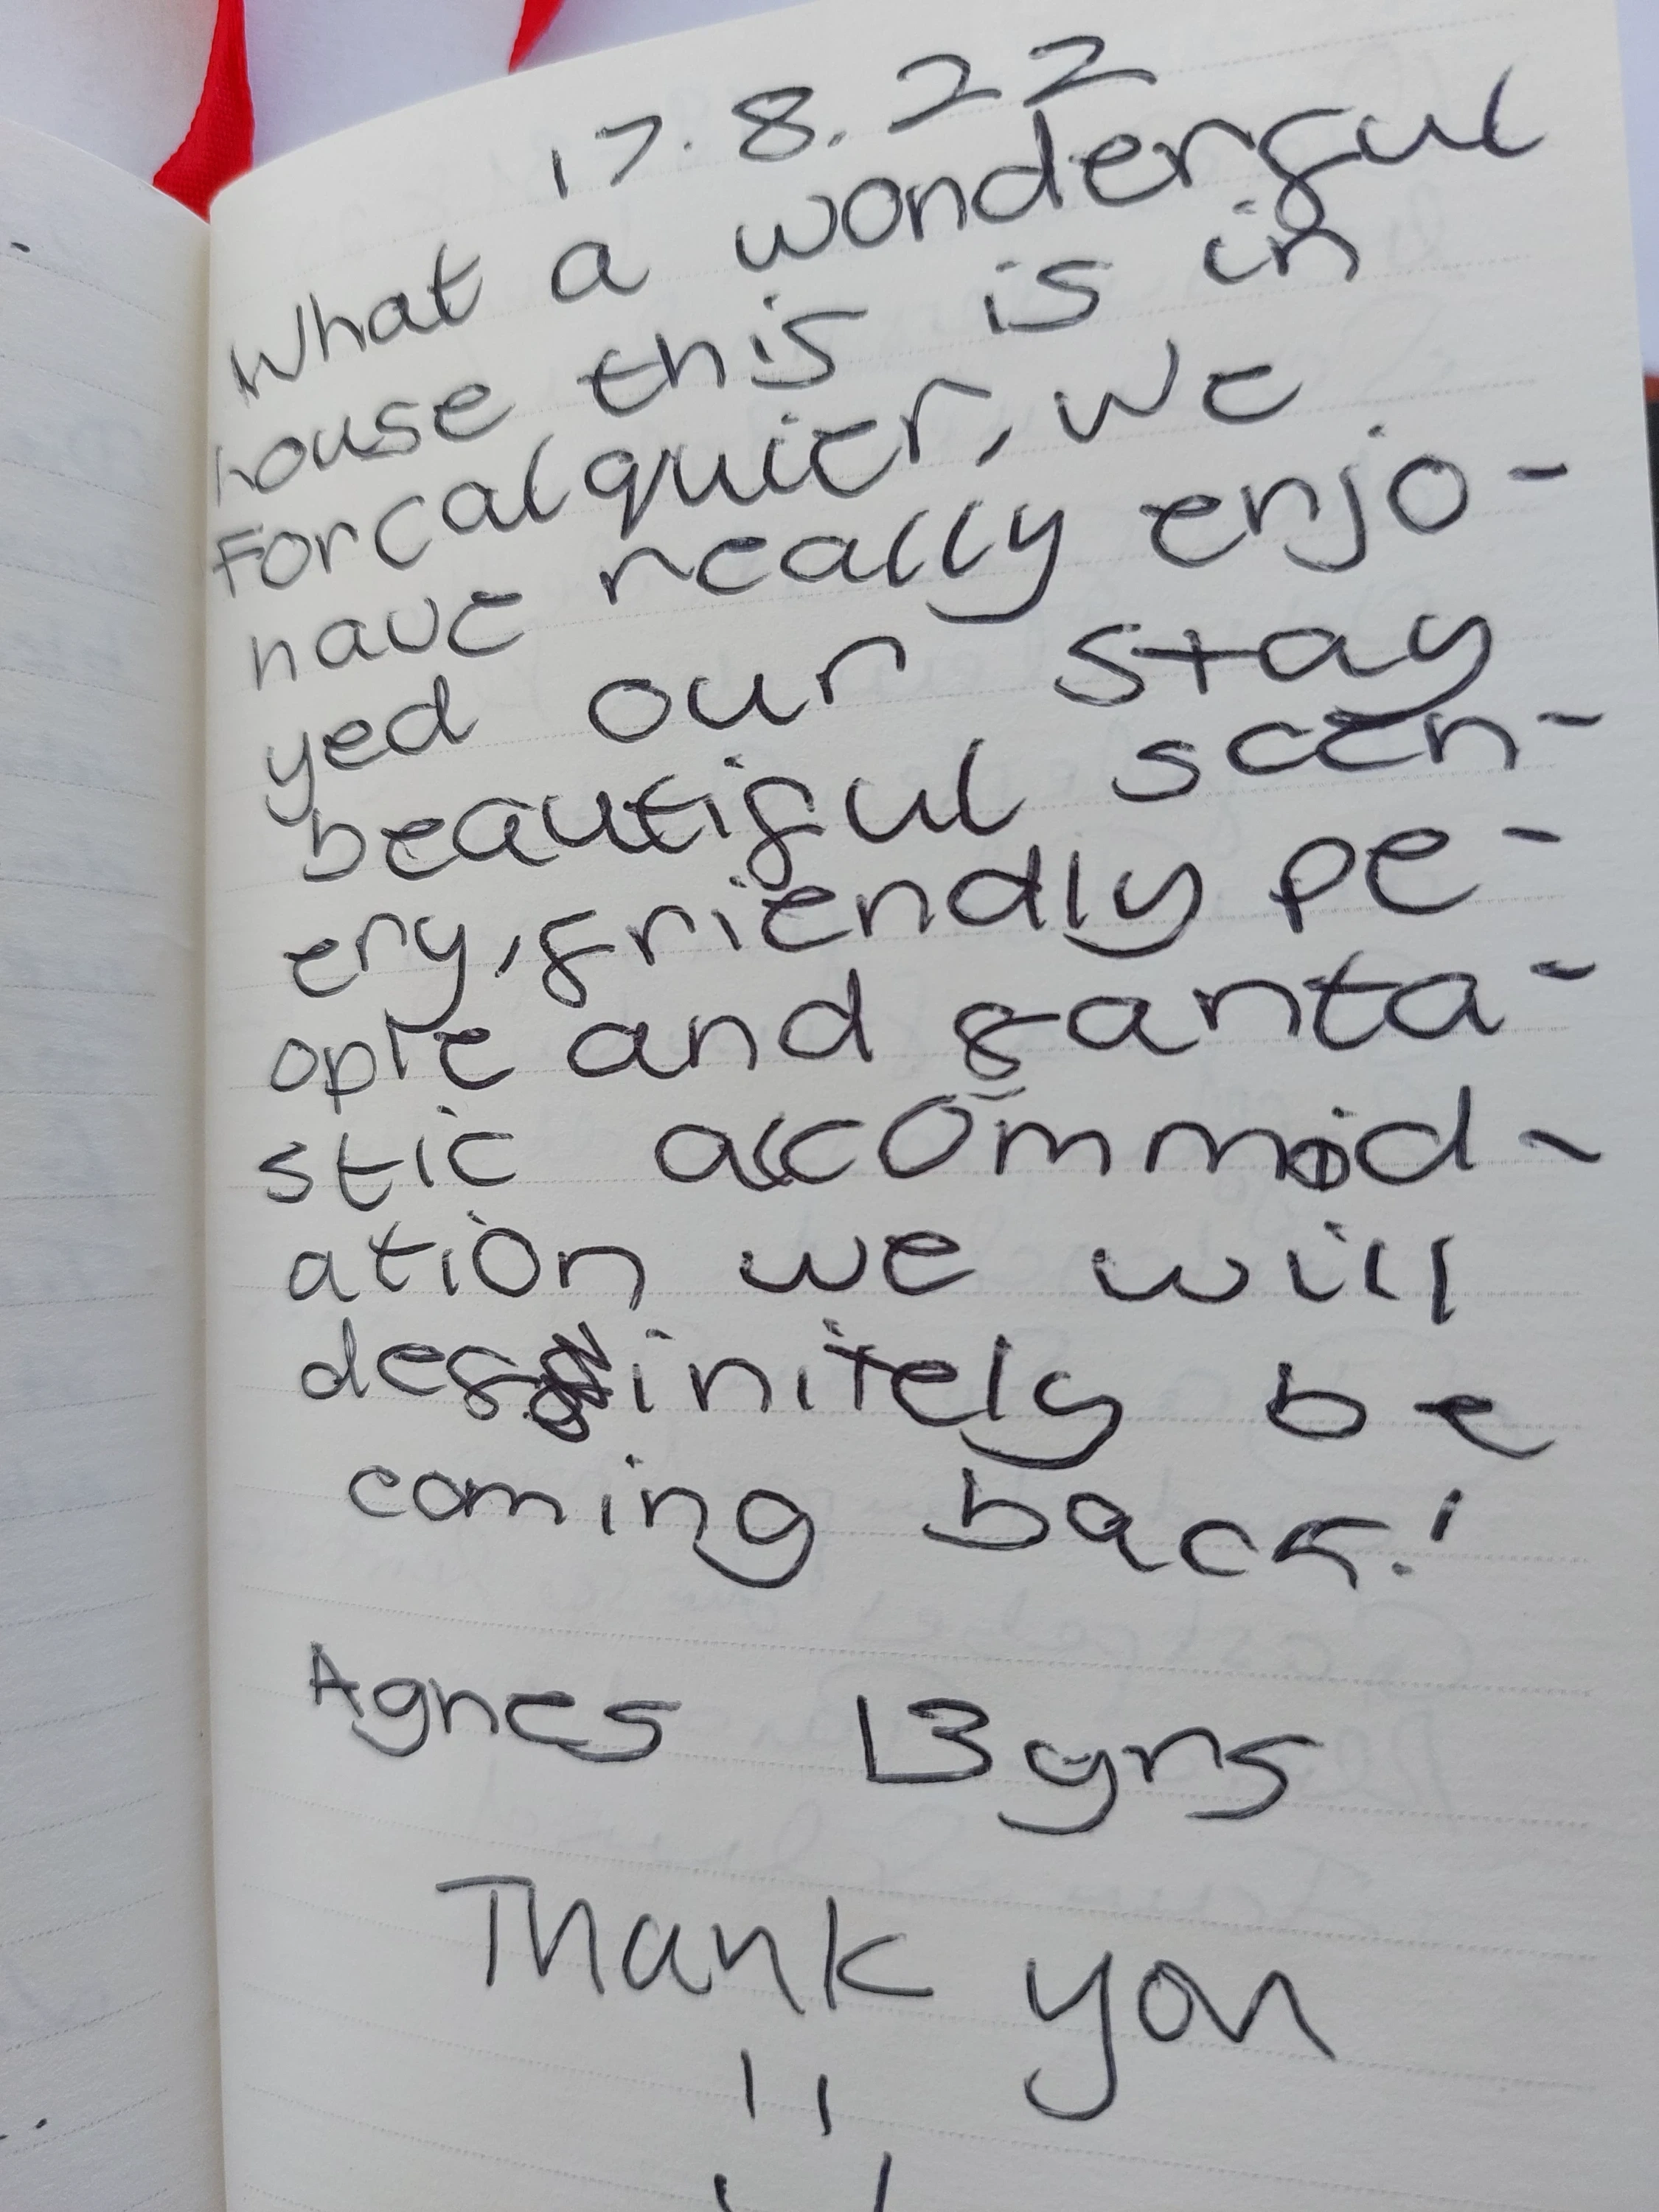 17.8.22
What a wonderful
house this is in
Forcalquier, we
have really enjo-
yed our stay
beautiful scen-
ery, friendly pe-
ople and fanta-
stic accommod-
ation we will
definitely be
coming back!
Agnes 13 yrs
Thank you